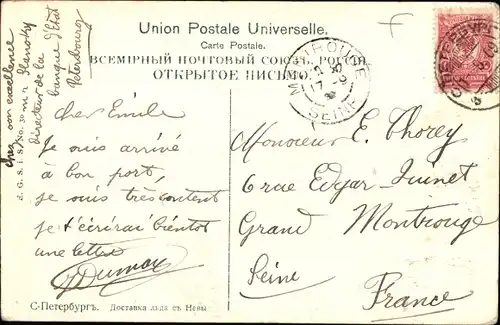 Union Postale Universelle.
Carte Postale.
ВСЕМІРНЫЙ ПОЧТОВЫЙ СОЮЗЪ. РОССІЯ
ОТКРЫТОЕ ПИСЬМО.
chez son excellence
directeur de la
banque d'Etat
Petersbourg
Cher Emile
Je suis arrivé
à bon port,
je suis très content
je t'écrirai bientôt
une lettre
Dumox
MONTROUGE
17-9
SEINE
Monsieur E. Thorey
6 rue Edgar Quinet
Grand Montrouge
Seine
France
С-Петербургъ. Доставка льда съ Невы